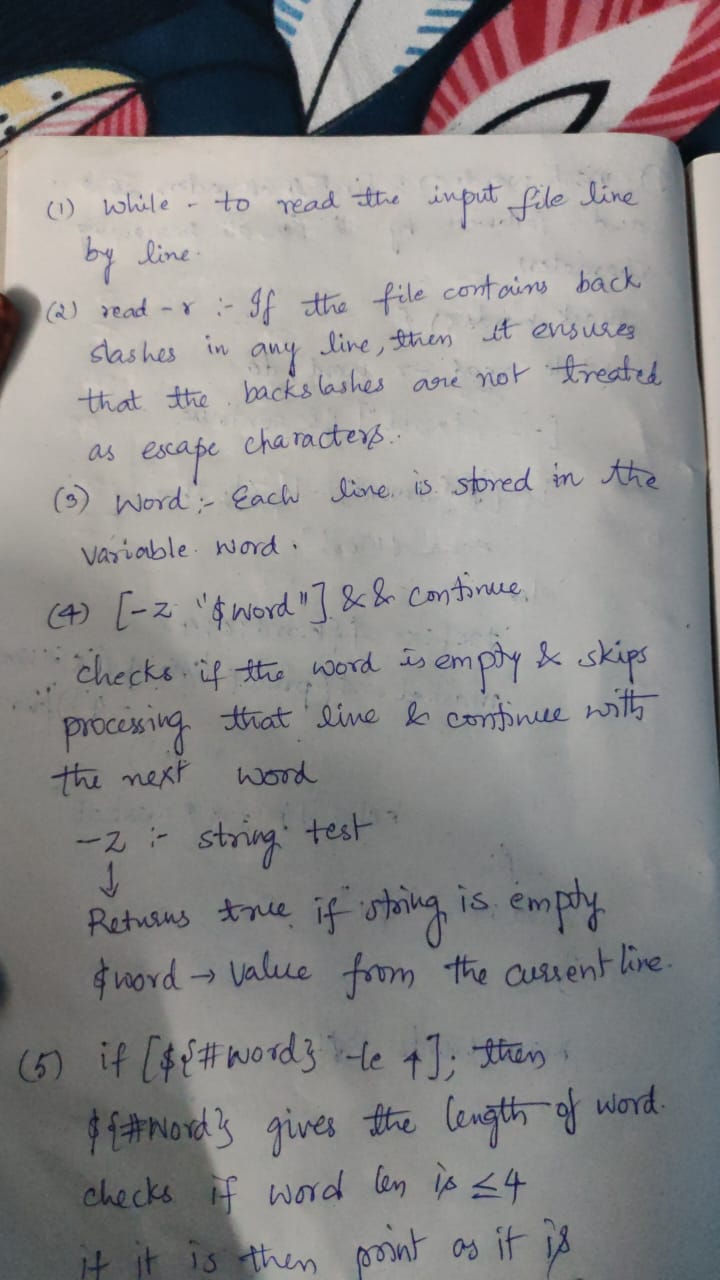 (1) While - to read the input file line
by line.
(2) read -r :- If the file contains back
slashes in any line, then it ensures
that the backslashes are not treated
as escape characters.
(3) Word :- Each line is stored in the
variable word.
(4) [-z "$word"] && continue
checks if the word is empty & skips
processing that line & continue with
the next word
-z :- string test
↓
Returns true if string is empty
$word → value from the current line.
(5) if [${#word} -le 4]; then
${#word} gives the length of word.
checks if word len is ≤4
if it is then print as it is